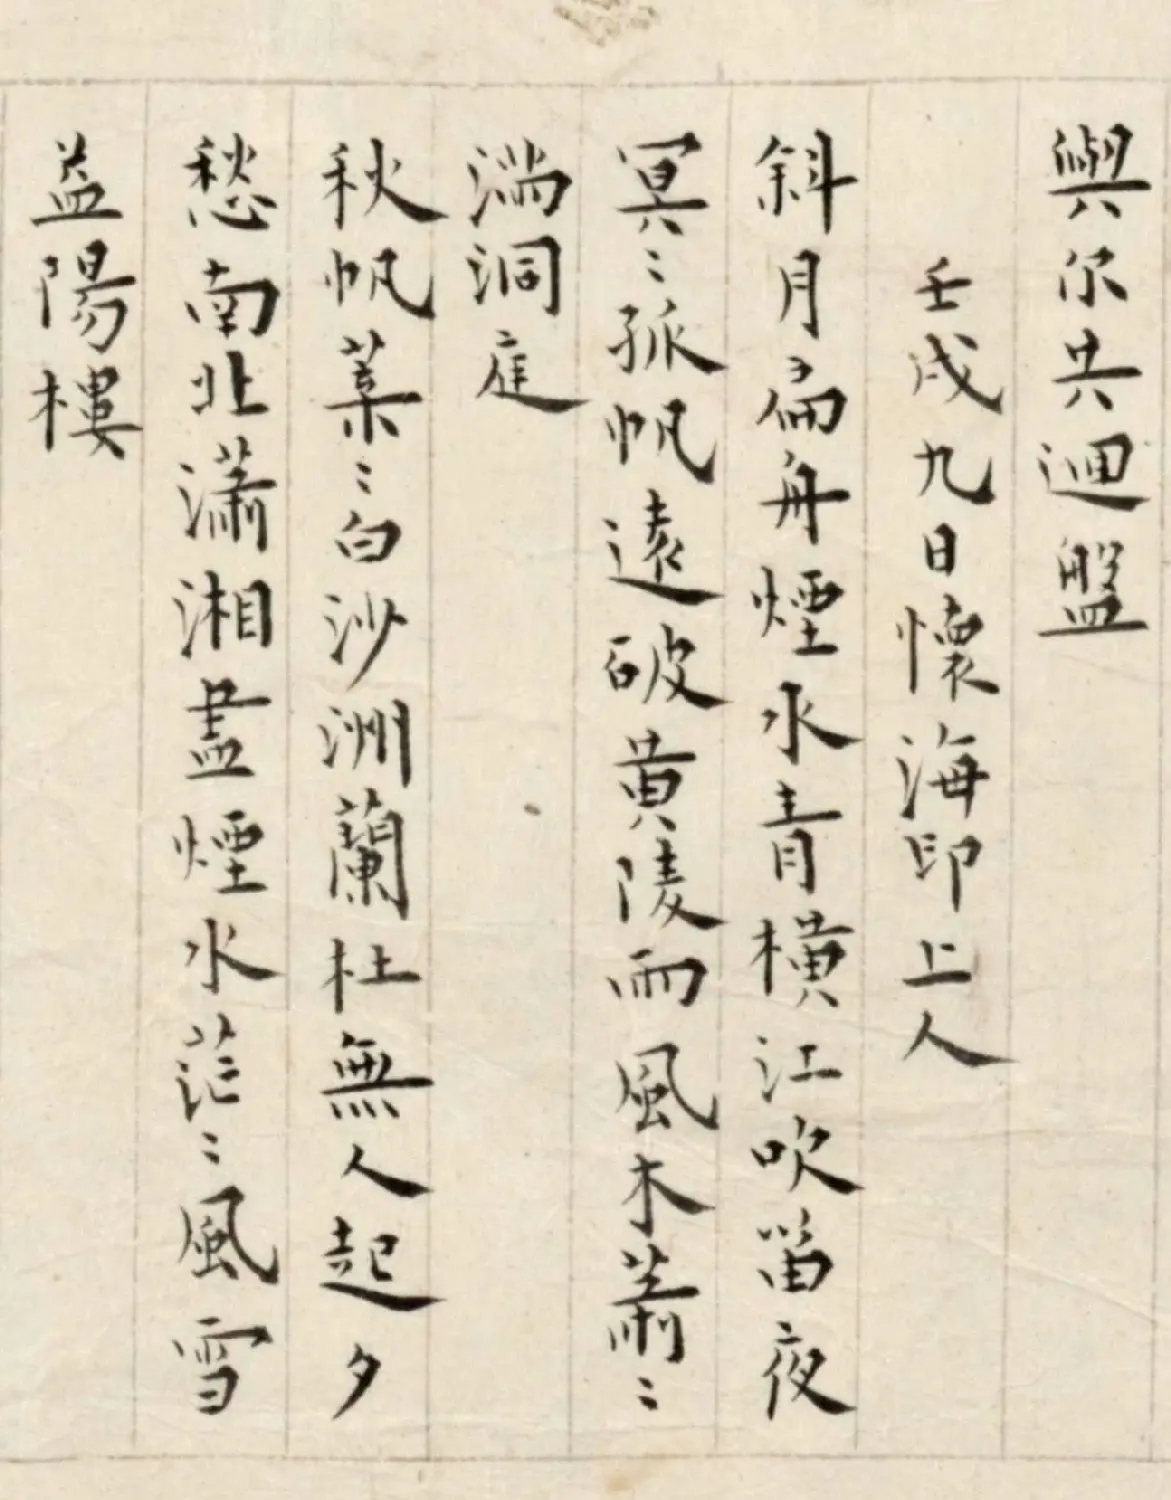 與尔共迴盤
壬戌九日懷海印上人
斜月扁舟煙水青橫江吹笛夜
冥〻孤帆遠破黃陵雨風木蕭〻
滿洞庭
秋帆葉〻白沙洲蘭杜無人起夕
愁南北瀟湘盡煙水茫〻風雪
益陽樓